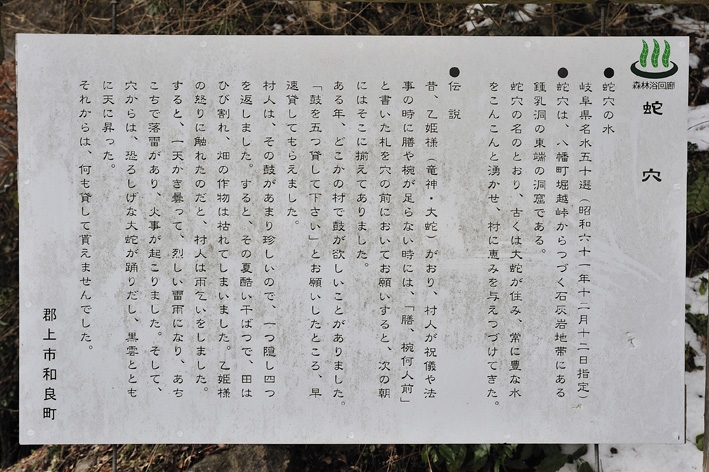 森林浴回廊
蛇穴
●蛇穴の水
岐阜県名水五十選（昭和六十一年十二月十二日指定）
●蛇穴は、八幡町堀越峠からつづく石灰岩地帯にある
鍾乳洞の東端の洞窟である。
蛇穴の名のとおり、古くは大蛇が住み、常に豊な水
をこんこんと湧かせ、村に恵みを与えつづけてきた。
●伝説
昔、乙姫様（竜神・大蛇）がおり、村人が祝儀や法
事の時に膳や椀が足らない時には、「膳、椀何人前」
と書いた札を穴の前においてお願いすると、次の朝
にはそこに揃えてありました。
ある年、どこかの村で鼓が欲しいことがありました。
「鼓を五つ貸して下さい」とお願いしたところ、早
速貸してもらえました。
村人は、その鼓があまり珍しいので、一つ隠し四つ
を返しました。すると、その夏酷い干ばつで、田は
ひび割れ、畑の作物は枯れてしまいました。乙姫様
の怒りに触れたのだと、村人は雨乞いをしました。
すると、一天かき曇って、烈しい雷雨になり、あち
こちで落雷があり、火事が起こりました。そして、
穴からは、恐ろしげな大蛇が踊りだし、黒雲ととも
に天に昇った。
それからは、何も貸して貰えませんでした。
郡上市和良町